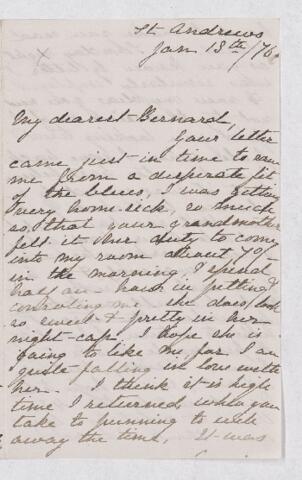 St Andrews
Jan 13th/76
My dearest Gernard,
Your letter
came just in time to save
me from a desperate fit
of the blues, I was getting
very home-sick, so much
so, that your grandmother
felt it her duty to come
into my room about 7 o'c
in the morning & spend
half an hour in petting &
controling me she does look
so sweet & pretty in her
night-cap, I hope she is
going to like me, for I am
quite falling in love with
her. I think it is high
time I returned when you
take to punning to wile
away the time, It was